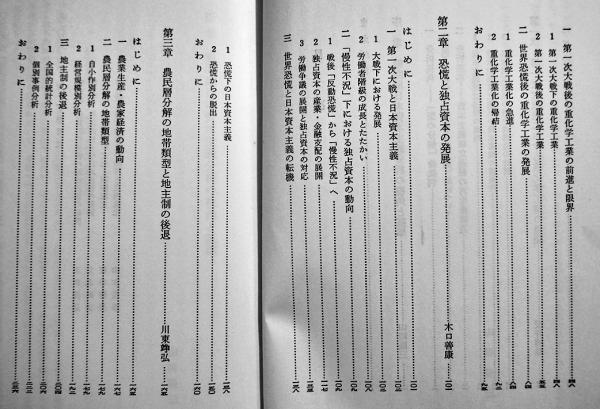 一 第一次大戦後の重化学工業の前進と限界
1 第一次大戦下の重化学工業
2 第一次大戦後の重化学工業
二 世界恐慌後の重化学工業の発展
1 重化学工業化の急進
2 重化学工業化の帰結
おわりに
第二章 恐慌と独占資本の発展 木口善康
はじめに
一 第一次大戦と日本資本主義
1 大戦下における発展
2 労働者階級の成長とたたかい
二 「慢性不況」下における独占資本の動向
1 戦後「反動恐慌」から「慢性不況」へ
2 独占資本の産業・金融支配の展開
3 労働争議の展開と独占資本の対応
三 世界恐慌と日本資本主義の転機
1 恐慌下の日本資本主義
2 恐慌からの脱出
おわりに
第三章 農民層分解の地帯類型と地主制の後退 川東竫弘
はじめに
一 農業生産・農家経済の動向
二 農民層分解の地帯類型
1 自小作別分析
2 経営規模別分析
三 地主制の後退
1 全国的統計分析
2 個別事例分析
おわりに